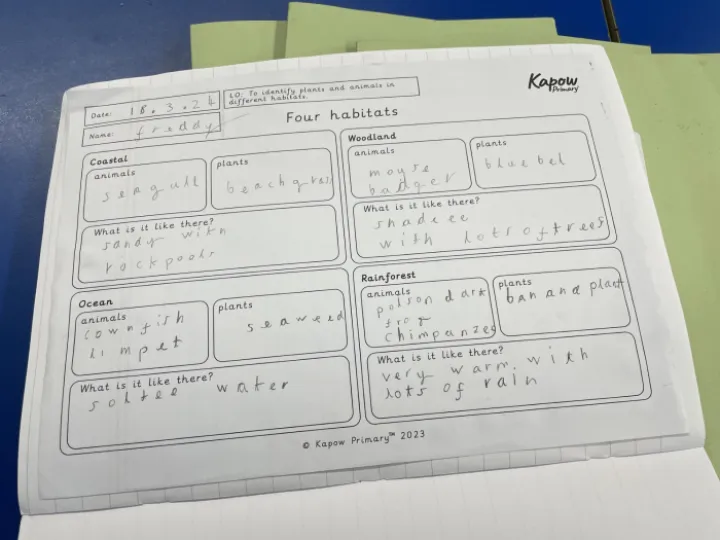 Date: 18.3.24
LO: To identify plants and animals in
different habitats.
Kapow
Primary
Name: freddy
Four habitats
Coastal
animals
seagull
plants
beachgrass
What is it like there?
sandy with
rockpools
Woodland
animals
mouse
badger
plants
bluebel
What is it like there?
shadeee
with lots of trees
Ocean
animals
cownfish
limpet
plants
seaweed
What is it like there?
soltee water
Rainforest
animals
poison dart
frog
chimpanzee
plants
banana plant
What is it like there?
very warm. with
lots of rain
© Kapow Primary™ 2023